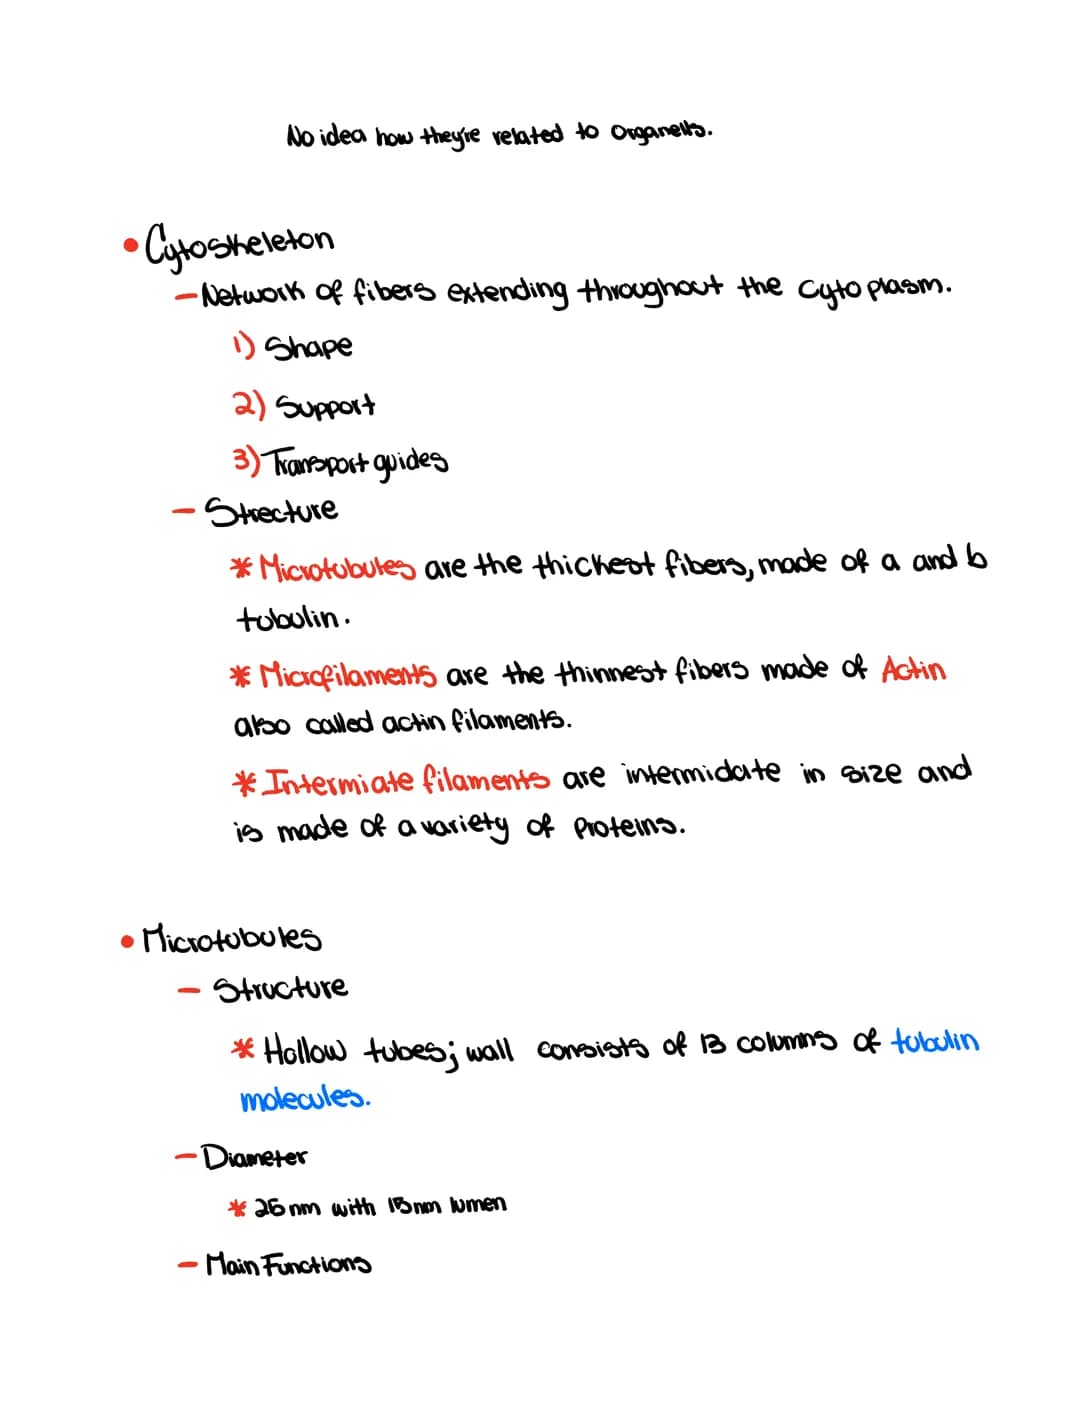 No idea how they're related to Organells.
• Cytoskeleton
- Network of fibers extending throughout the Cytoplasm.
1) Shape
2) Support
3) Transport guides
- Strecture
* Microtubules are the thickest fibers, made of a and b
tubulin.
* Microfilaments are the thinnest fibers made of Actin
also called actin filaments.
* Intermiate filaments are intermidate in size and
is made of a variety of Proteins.
• Microtubules
- Structure
* Hollow tubes; wall consists of 13 columns of tubulin
molecules.
- Diameter
* 25 nm with 15nm lumen
- Main Functions